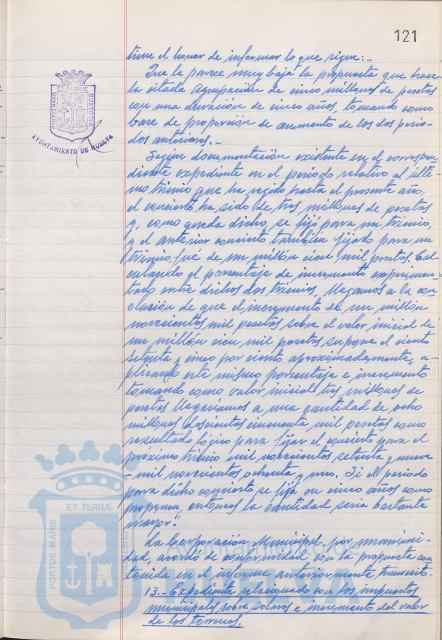 121
tiene el honor de informar lo que sigue:-
Que le parece muy baja la propuesta que hace
la citada Agrupación de cinco millones de pesetas
con una duración de cinco años, tomando como
base de proporción de aumento de los dos perio-
dos anteriores.-
Según documentación existente en el correspon-
diente expediente en el periodo relativo al últi-
mo trienio que ha regido hasta el presente año,
el concierto ha sido de tres millones de pesetas
y, como queda dicho, se fijó para un trienio,
y el anterior concierto también fijado para un
trienio, fué de un millón cien mil pesetas. Cal-
culando el porcentaje de incremento experimen-
tado entre dichos dos trienios, llegamos a la con-
clusión de que el incremento de un millón
novecientas mil pesetas sobre el valor inicial de
un millón cien mil pesetas supone el ciento
setenta y cinco por ciento aproximadamente, a-
plicando este mismo porcentaje e incremento
tomando como valor inicial tres millones de
pesetas llegaríamos a una cantidad de ocho
millones doscientas cincuenta mil pesetas como
resultado lógico para fijar el concierto para el
próximo trienio mil novecientos setenta y nueve
-mil novecientos ochenta y uno. Si el periodo
para dicho concierto se fija en cinco años como
propone, entonces la cantidad sería bastante
mayor."
La Corporación Municipal, por unanimi-
dad, acordó de conformidad con la propuesta con-
tenida en el informe anteriormente transcrito.
13.- Expediente relacionado con los impuestos
municipales sobre solares e incremento del valor
de los terrenos.
ET TERRÆ
PORTUS MARIS
CUSTODIA
AYUNTAMIENTO DE HUELVA
ET TERRÆ
PORTUS MARIS
Ayuntamiento de
HUELVA